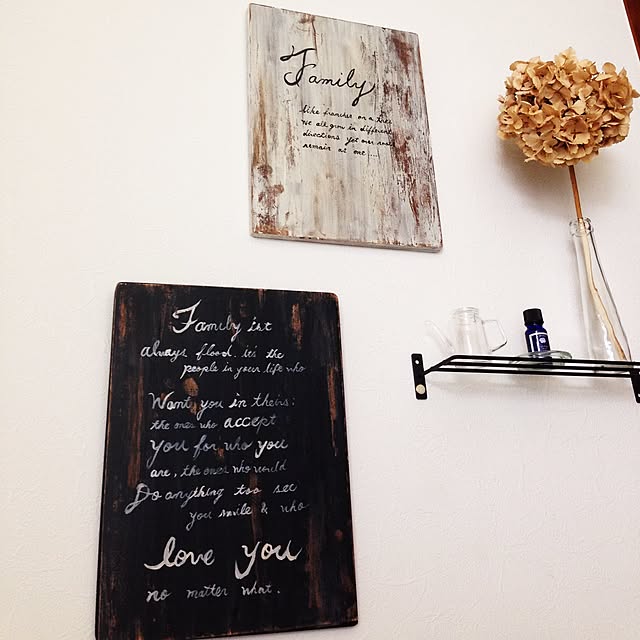 Family
like franches on a tree
we all grow in different
directions yet our roots
remain at one....
Family ist
always flood. it's the
people in your life who
Want you in theirs:
the ones who accept
you for who you
are, the ones who would
Do anything too see
you smile & who
love you
no matter what.